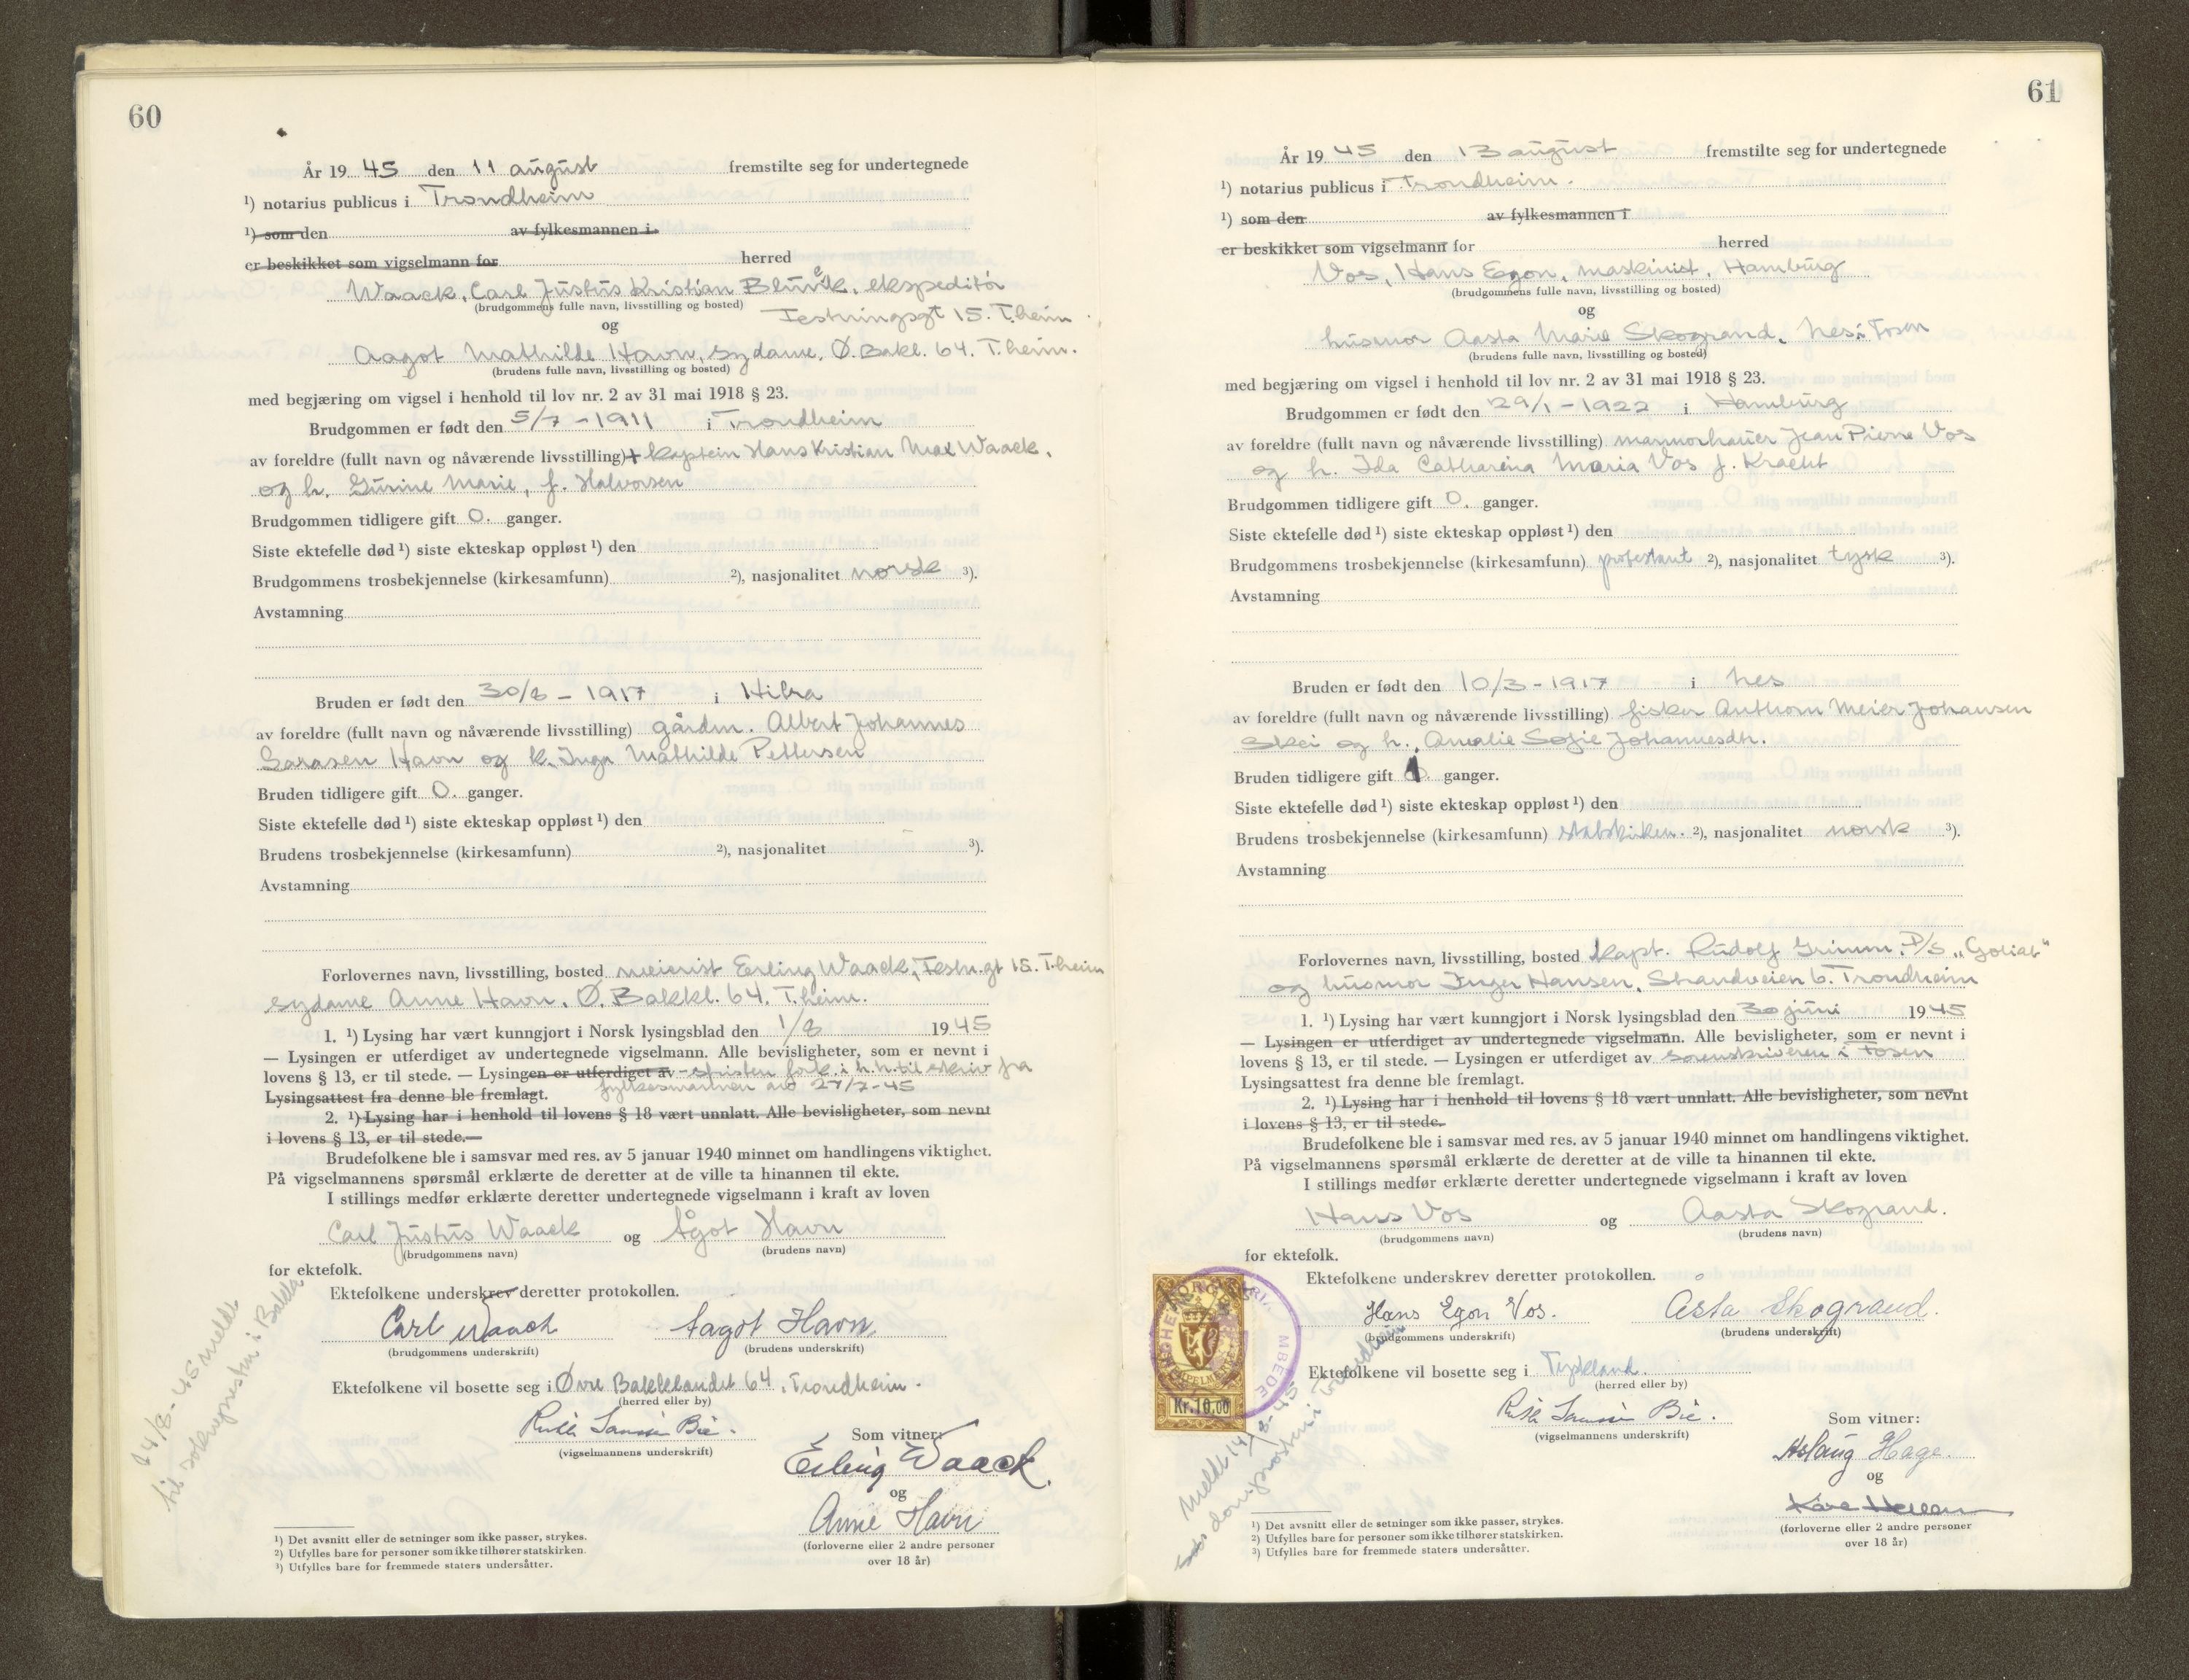 60
År 19 45 den 11 august fremstilte seg for undertegnede
¹) notarius publicus i Trondheim
¹) som den av fylkesmannen i
er beskikket som vigselmann for herred
Waack, Carl Justus Kristian, ekspeditør
(brudgommens fulle navn, livsstilling og bosted) Festningsgt 15. T.heim
og
Aagot Mathilde Havn, sydame, Ø. Bakl. 64. T.heim.
(brudens fulle navn, livsstilling og bosted)
med begjæring om vigsel i henhold til lov nr. 2 av 31 mai 1918 § 23.
Brudgommen er født den 5/7 - 1911 i Trondheim
av foreldre (fullt navn og nåværende livsstilling) + kaptein Hans Kristian Max Waack,
og h. Gurine Marie, f. Halvorsen
Brudgommen tidligere gift 0. ganger.
Siste ektefelle død ¹) siste ekteskap oppløst ¹) den
Brudgommens trosbekjennelse (kirkesamfunn) ²), nasjonalitet norsk ³).
Avstamning
Bruden er født den 30/8 - 1917 i Hitra
av foreldre (fullt navn og nåværende livsstilling) gårdm. Albert Johannes
Havn og k. Inga Mathilde Pettersen
Bruden tidligere gift 0. ganger.
Siste ektefelle død ¹) siste ekteskap oppløst ¹) den
Brudens trosbekjennelse (kirkesamfunn) ²), nasjonalitet ³).
Avstamning
Forlovernes navn, livsstilling, bosted meierist Erling Waack, Festn.gt 15. T.heim
sydame Anne Havn, Ø. Bakkl. 64. T.heim.
1. ¹) Lysing har vært kunngjort i Norsk lysingsblad den 1/8 19 45
— Lysingen er utferdiget av undertegnede vigselmann. Alle bevisligheter, som er nevnt i
lovens § 13, er til stede. — Lysingen er utferdiget av - fristen fork. i h.h.til skriv fra
Lysingsattest fra denne ble fremlagt. fylkesmannen av 27/7-45
2. ¹) Lysing har i henhold til lovens § 18 vært unnlatt. Alle bevisligheter, som nevnt
i lovens § 13, er til stede.—
Brudefolkene ble i samsvar med res. av 5 januar 1940 minnet om handlingens viktighet.
På vigselmannens spørsmål erklærte de deretter at de ville ta hinannen til ekte.
I stillings medfør erklærte deretter undertegnede vigselmann i kraft av loven
Carl Justus Waack og Ågot Havn
(brudgommens navn) (brudens navn)
for ektefolk.
Ektefolkene underskrev deretter protokollen.
Carl Waack Aagot Havn
(brudgommens underskrift) (brudens underskrift)
Ektefolkene vil bosette seg i Øvre Bakklandet 64, Trondheim.
(herred eller by)
(vigselmannens underskrift)
Som vitner:
Erling Waack
og
Anne Havn
(forloverne eller 2 andre personer
over 18 år)
14/8-45 meldt
til soknepresten i Bakka
¹) Det avsnitt eller de setninger som ikke passer, strykes.
²) Utfylles bare for personer som ikke tilhører statskirken.
³) Utfylles bare for fremmede staters undersåtter.
61
År 19 45 den 13 august fremstilte seg for undertegnede
¹) notarius publicus i Trondheim.
¹) som den av fylkesmannen i
er beskikket som vigselmann for herred
Vos, Hans Egon, maskinist, Hamburg
(brudgommens fulle navn, livsstilling og bosted)
og
husmor Aasta Marie Skogrand, Nes i Fosen
(brudens fulle navn, livsstilling og bosted)
med begjæring om vigsel i henhold til lov nr. 2 av 31 mai 1918 § 23.
Brudgommen er født den 29/1 - 1922 i Hamburg
av foreldre (fullt navn og nåværende livsstilling) marmorhauer Jean Pierre Vos
og h. Ida Catharina Maria Vos f. Kracht
Brudgommen tidligere gift 0. ganger.
Siste ektefelle død ¹) siste ekteskap oppløst ¹) den
Brudgommens trosbekjennelse (kirkesamfunn) protestant ²), nasjonalitet tysk ³).
Avstamning
Bruden er født den 10/3 - 1917 i Nes
av foreldre (fullt navn og nåværende livsstilling) fisker Anthorn Meier Johansen
Skei og h. Amalie Sofie Johannesdtr.
Bruden tidligere gift 1 ganger.
Siste ektefelle død ¹) siste ekteskap oppløst ¹) den
Brudens trosbekjennelse (kirkesamfunn) statskirken. ²), nasjonalitet norsk ³).
Avstamning
Forlovernes navn, livsstilling, bosted kapt. Rudolf Grimm, D/S „Goliat"
og husmor Inger Hansen, Strandveien 6. Trondheim
1. ¹) Lysing har vært kunngjort i Norsk lysingsblad den 30 juni 19 45
— Lysingen er utferdiget av undertegnede vigselmann. Alle bevisligheter, som er nevnt i
lovens § 13, er til stede. — Lysingen er utferdiget av sorenskriveren i Fosen
Lysingsattest fra denne ble fremlagt.
2. ¹) Lysing har i henhold til lovens § 18 vært unnlatt. Alle bevisligheter, som nevnt
i lovens § 13, er til stede.
Brudefolkene ble i samsvar med res. av 5 januar 1940 minnet om handlingens viktighet.
På vigselmannens spørsmål erklærte de deretter at de ville ta hinannen til ekte.
I stillings medfør erklærte deretter undertegnede vigselmann i kraft av loven
Hans Vos og Aasta Skogrand.
(brudgommens navn) (brudens navn)
for ektefolk.
Ektefolkene underskrev deretter protokollen.
Hans Egon Vos. Asta Skogrand.
(brudgommens underskrift) (brudens underskrift)
Ektefolkene vil bosette seg i Tyskland.
(herred eller by)
(vigselmannens underskrift)
Som vitner:
Aslaug Hage.
og
Kåre
(forloverne eller 2 andre personer
over 18 år)
Kr. 10,00
Meldt 14/8-45
domprosten i Trondheim
¹) Det avsnitt eller de setninger som ikke passer, strykes.
²) Utfylles bare for personer som ikke tilhører statskirken.
³) Utfylles bare for fremmede staters undersåtter.